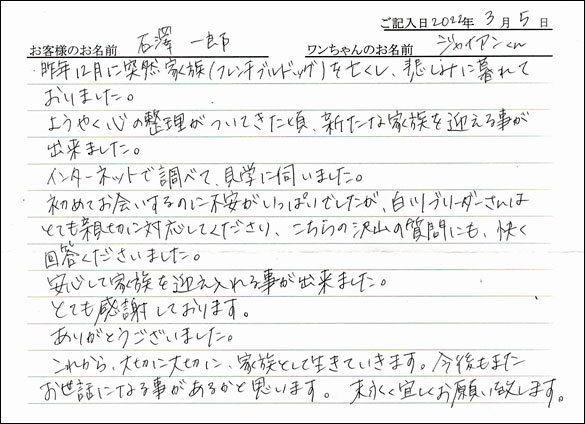 ご記入日 2022年 3月 5日
お客様のお名前 石澤 一郎 ワンちゃんのお名前 ジャイアンくん
昨年12月に突然家族(フレンチブルドッグ)を亡くし、悲しみに暮れて
おりました。
ようやく心の整理がついてきた頃、新たな家族を迎える事が
出来ました。
インターネットで調べて、見学に伺いました。
初めてお会いするのに不安がいっぱいでしたが、白川ブリーダーさんは
とても親切に対応してくださり、こちらの沢山の質問にも、快く
回答くださいました。
安心して家族を迎え入れる事が出来ました。
とても感謝しております。
ありがとうございました。
これから、大切に大切に、家族として生きていきます。今後もまた
お世話になる事があるかと思います。 末永く宜しくお願い致します。